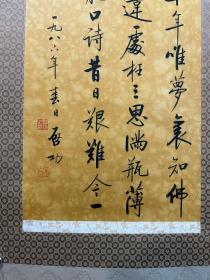 年年唯夢裏知佛
違處枉三思滿瓶薄
口詩昔日艱難今一
一九八六年春日 啓功